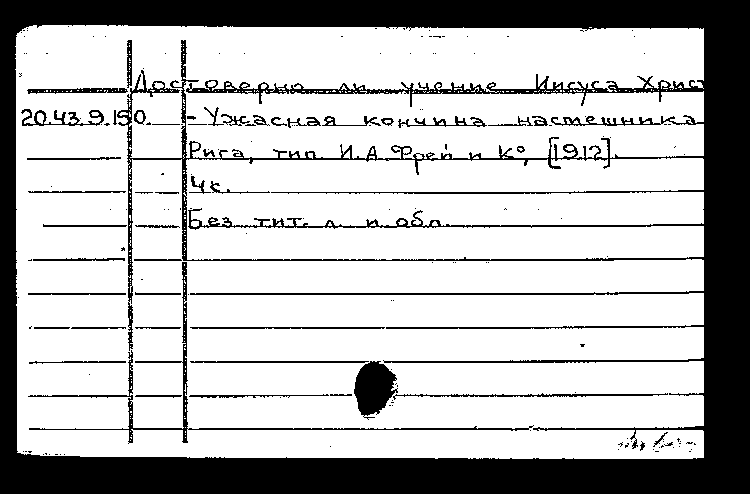 Достоверно ли учение Иисуса Христ
20.43.9.150. - Ужасная кончина насмешника
Рига, тип. И.А.Фрей и К°, [1912].
4 с.
Без тит. л. и обл.